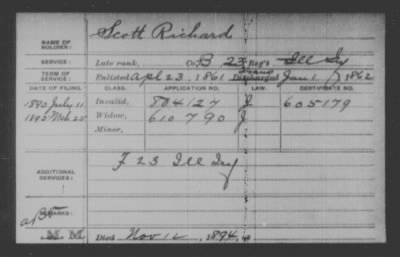 Scott Richard
NAME OF SOLDIER:
SERVICE: Late rank, Co. B 23 Reg't Ill Inf
TERM OF SERVICE: Enlisted Apl 23, 1861 Discharged Jan 1, 1862
DATE OF FILING. CLASS. APPLICATION NO. LAW. CERTIFICATE NO.
1890 July 11 Invalid, 804127 J 605179
Widow, 610790 J
Minor,
ADDITIONAL SERVICES: F 23 Ill Inf
REMARKS:
Died Nov 12, 1894,